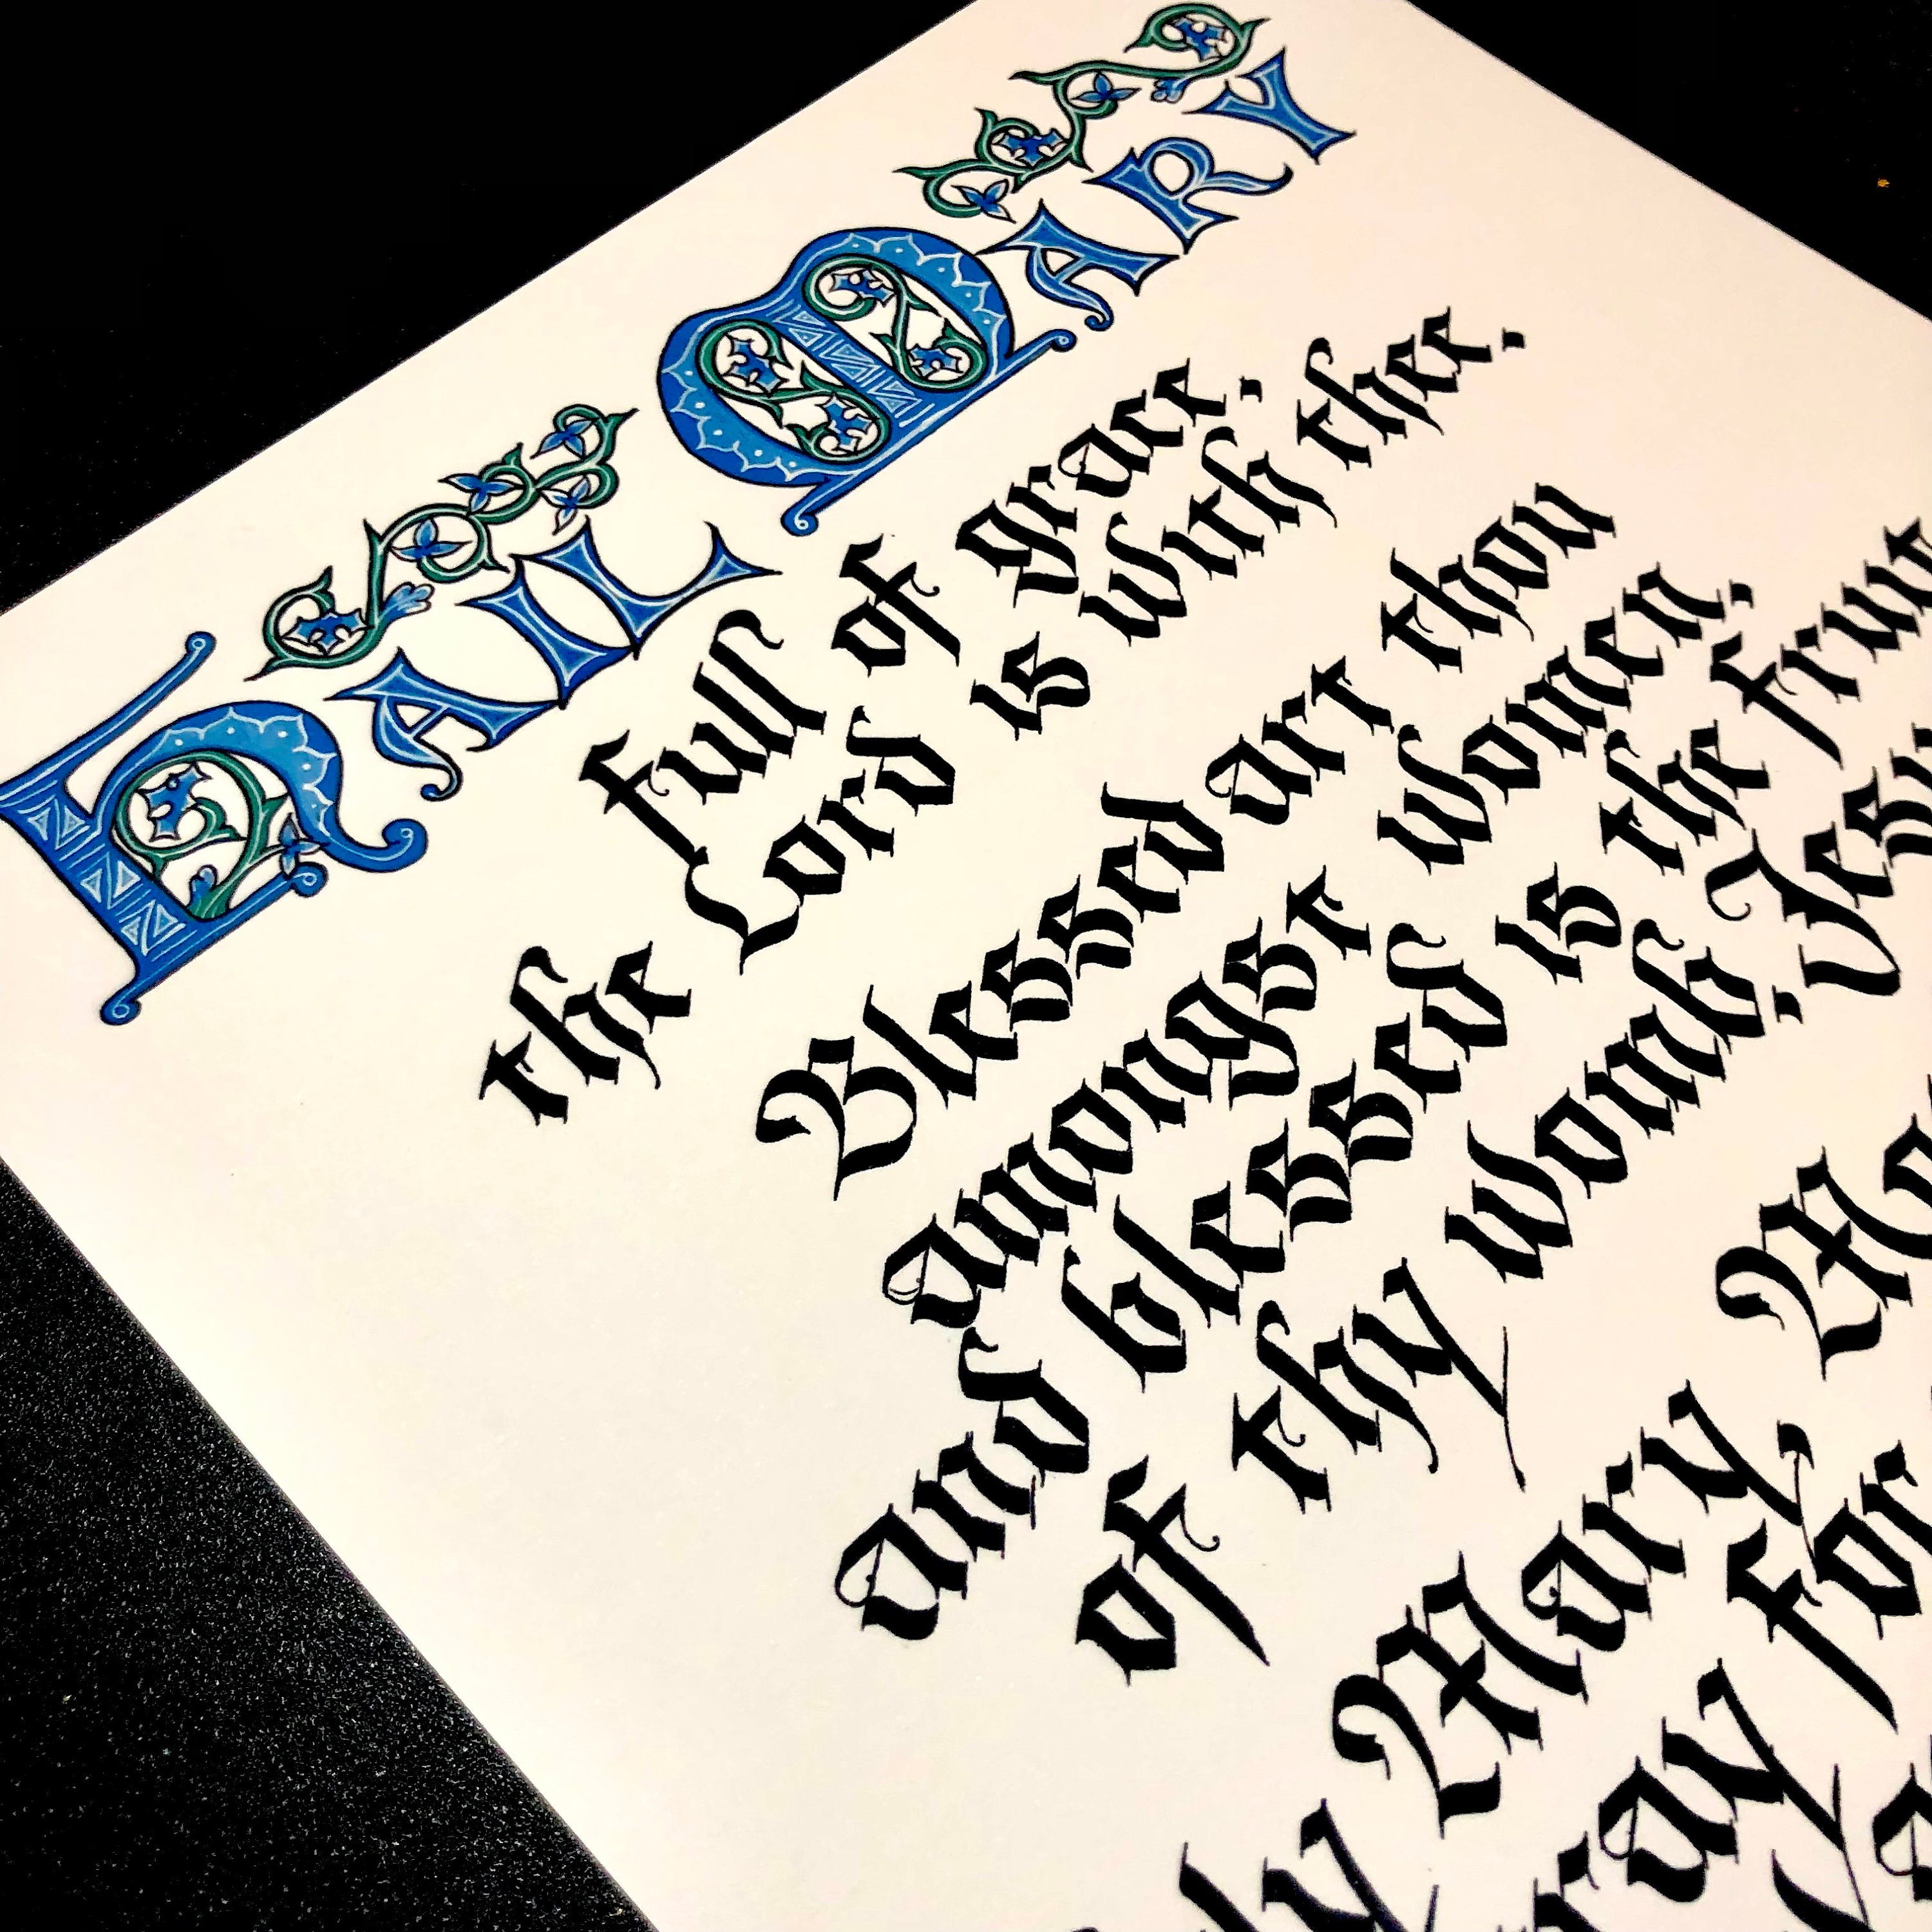 HAIL MARY
full of grace,
the Lord is with thee.
Blessed art thou
amongst women,
and blessed is the fruit
of thy womb, Jesu
ly Mary, Mo
ray for